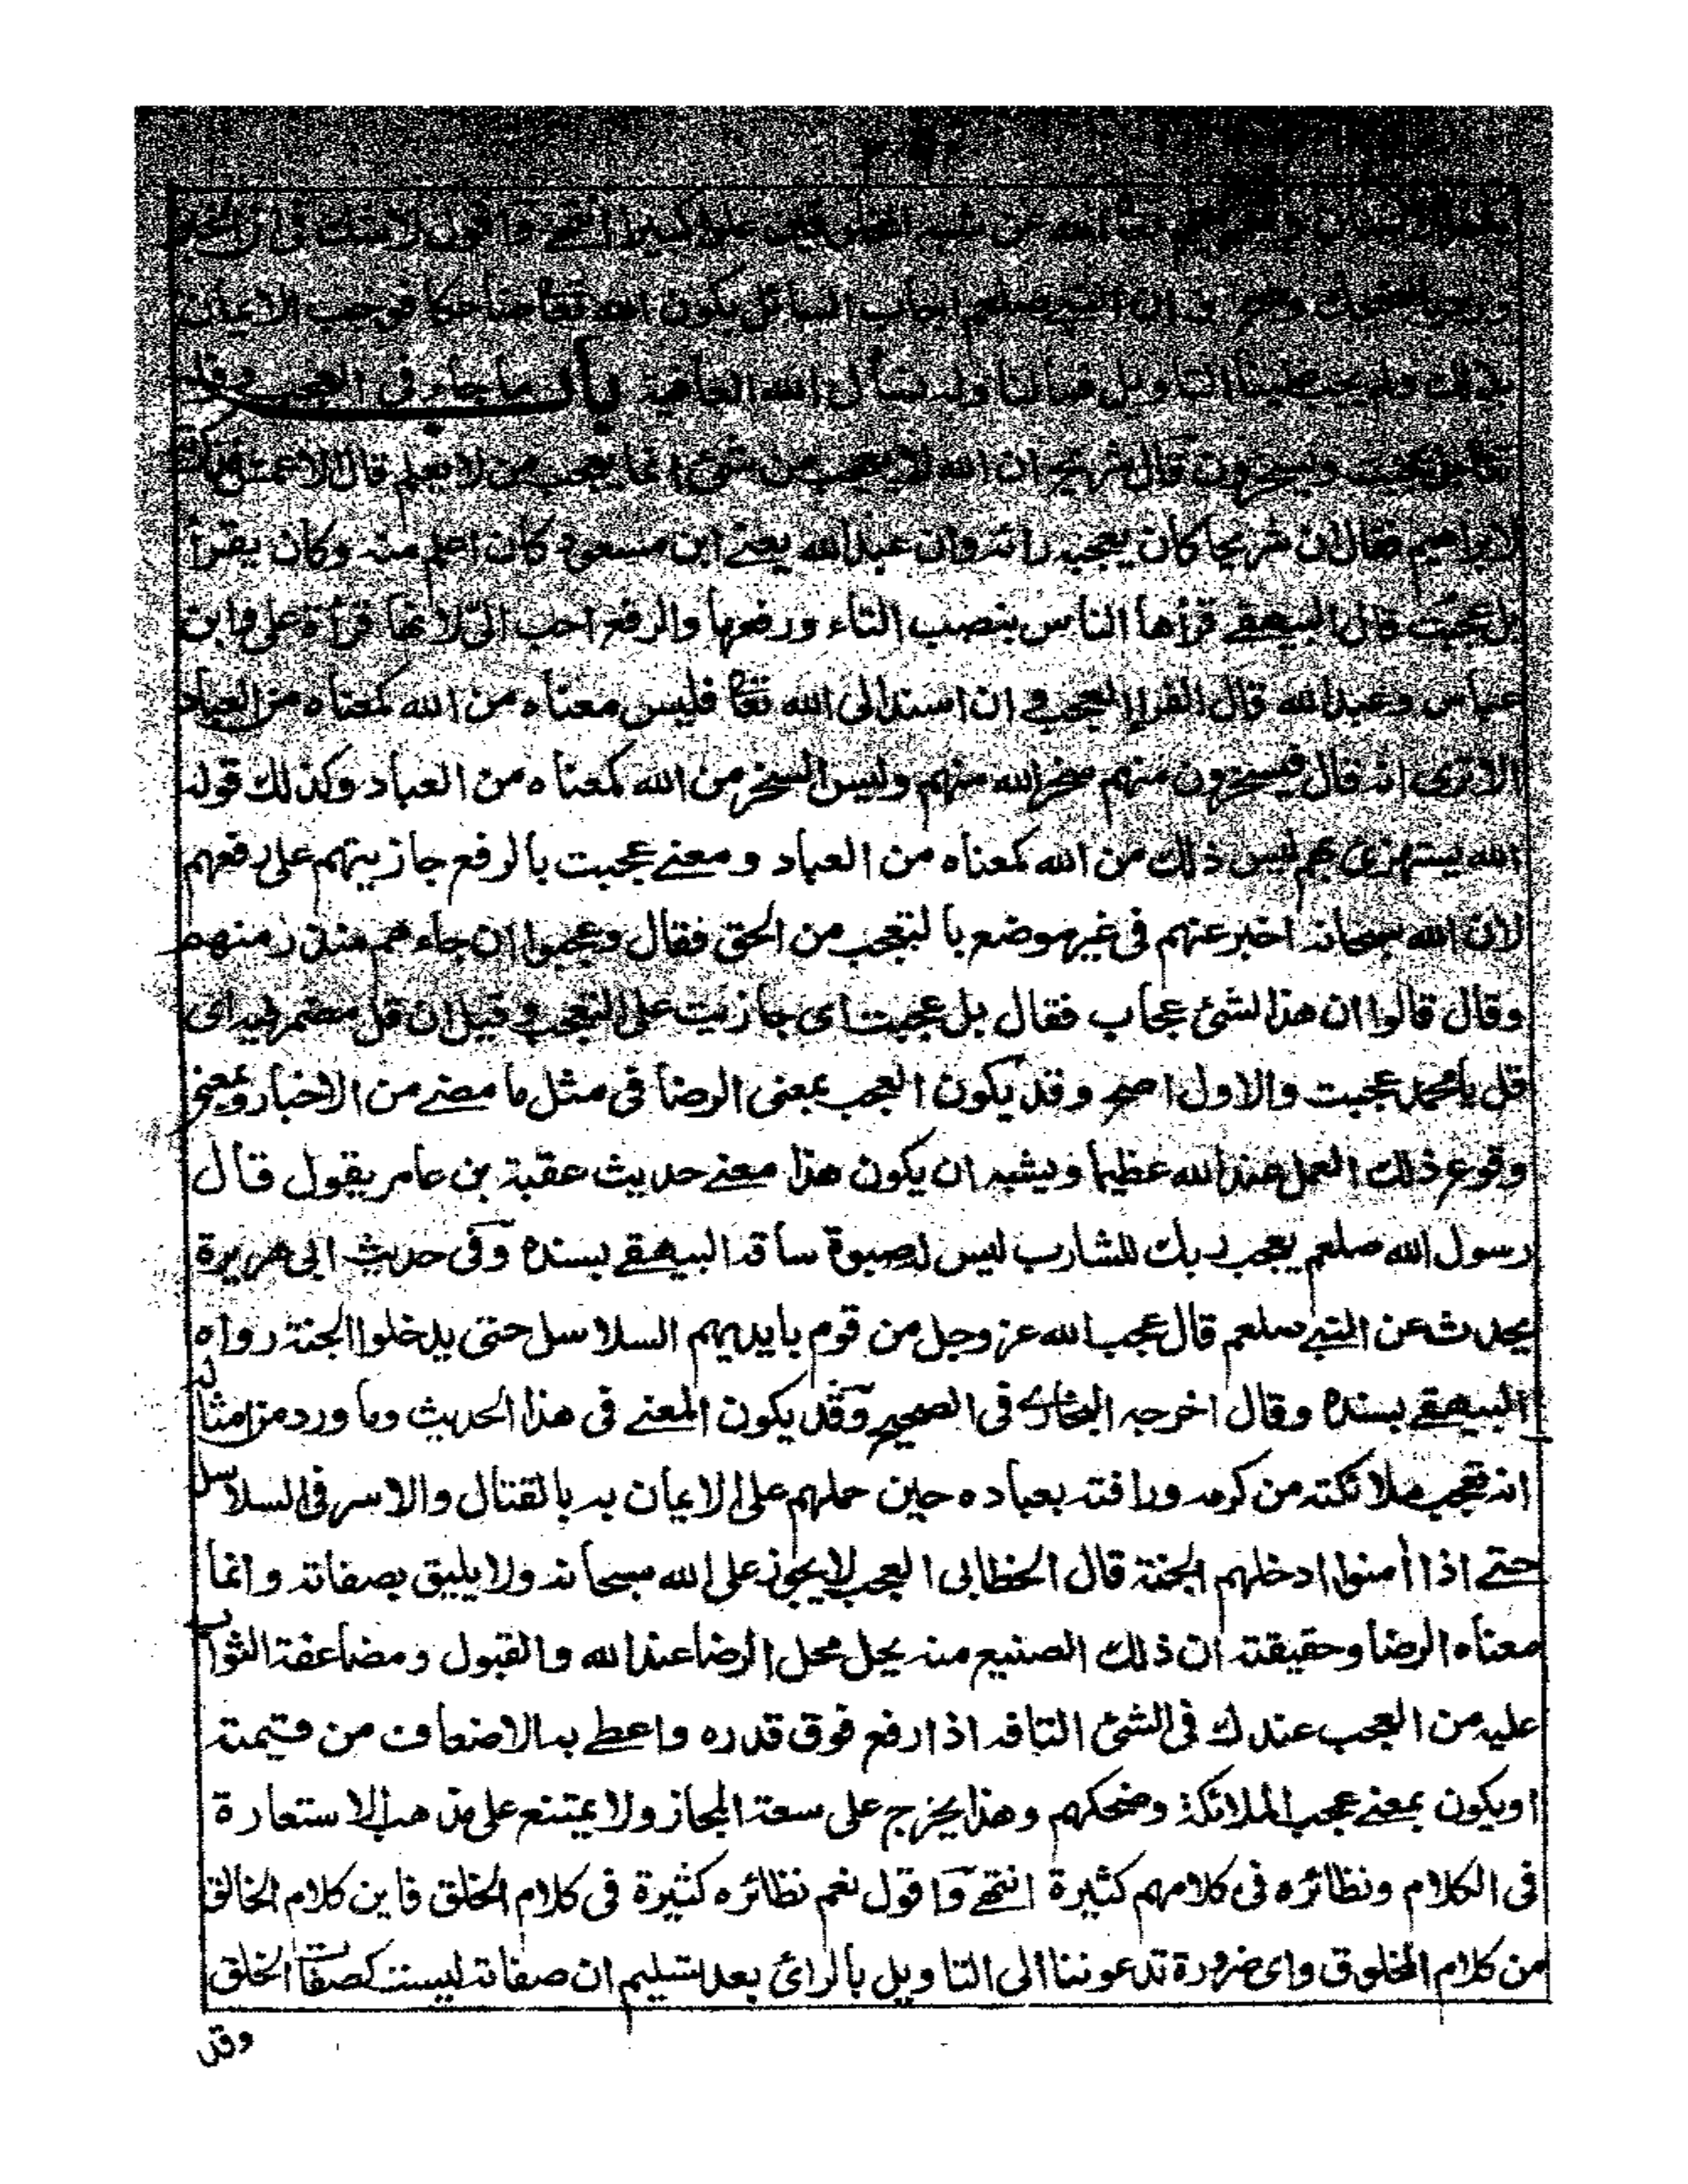 الله عن شبه الخلق علوا كبيرا انتهى واقول لا شك فى ان الخبر
ان النبي صلعم اجاب السائل بكون الله تعا ضاحكا فوجب الايمان
بذلك ولم يجب علينا التاويل فما لنا وله نسأل الله العافية باب ما جاء فى العجب وقوله
تعا بل عجبت ويسخرون قال شريح ان الله لا يعجب من شئ انما يعجب من لا يعلم قال الاعمش
لابراهيم فقال ان شريحا كان يعجبه رائه وان عبدالله يعنے ابن مسعود كان اعلم منه وكان يقرأ
بل عجبت قال البيهقے قرأها الناس بنصب التاء ورفعها والرفع احب الىّ لانها قرأة على وابن
عباس وعبدالله قال الفراء العجب وان اسند الى الله تعا فليس معناه من الله كمعناه من العباد
الا ترى انه قال فيسخرون منهم سخر الله منهم وليس السخر من الله كمعناه من العباد وكذلك قوله
الله يستهزئ بهم ليس ذلك من الله كمعناه من العباد ومعنے عجبت بالرفع جازيتهم على
لان الله سبحانه اخبر عنهم فى غير موضع بالتعجب من الحق فقال وعجبوا ان جاءهم منذر منهم
وقال قالوا ان هذا لشئ عجاب فقال بل عجبت اى جازيت على التعجب وقيل ان قل مضمر فيه اى
قل يا محمد عجبت والاول اصح وقد يكون العجب بمعنى الرضا فى مثل ما مضے من الاخبار وبمعنى
وقوع ذلك العمل عند الله عظيما ويشبه ان يكون هذا معنے حديث عقبة بن عامر يقول قال
رسول الله صلعم يعجب ربك للشارب ليس له صبوة ساقه البيهقے بسنده وفى حديث ابى هريرة
يحدث عن النبے صلعم قال عجب الله عز وجل من قوم بايديهم السلاسل حتى يدخلوا الجنة رواه
البيهقے بسنده وقال اخرجه البخارى فى الصحيح وقد يكون المعنے فى هذا الحديث وما ورد من امثاله
انه تعجب ملائكته من كرمه ورافته بعباده حين حملهم على الايمان به بالقتال والاسر فى السلاسل
حتے اذا أمنوا ادخلهم الجنة قال الخطابى العجب لا يجوز على الله سبحانه ولا يليق بصفاته وانما
معناه الرضا وحقيقته ان ذلك الصنيع منه يحل محل الرضا عند الله والقبول ومضاعفة الثواب
عليه من العجب عندك فى الشئ التافه اذا رفع فوق قدره واعطے به الاضعاف من قيمته
او يكون بمعنے عجب الملائكة وضحكهم وهذا يخرج على سعة المجاز ولا يمتنع على مذهب الاستعارة
فى الكلام ونظائره فى كلامهم كثيرة انتهے واقول نعم نظائره كثيرة فى كلام الخلق فاين كلام الخالق
من كلام المخلوق واى ضرورة تدعوننا الى التاويل بالرائ بعد تسليم ان صفاته ليست كصفات الخلق
وقد